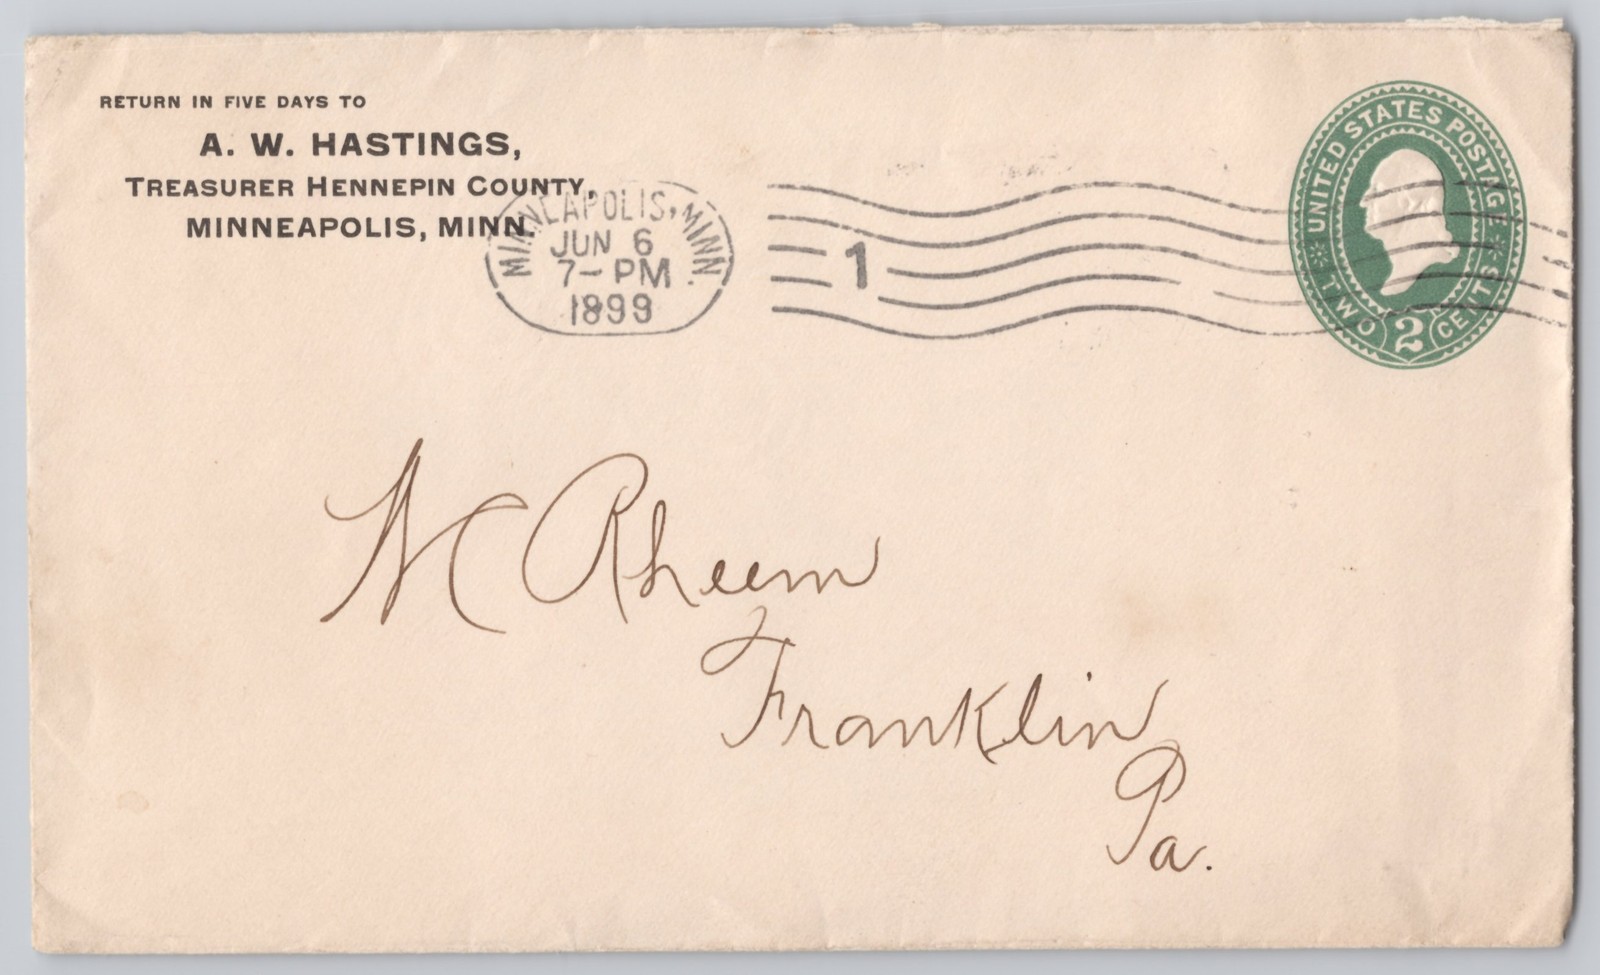 RETURN IN FIVE DAYS TO
A. W. HASTINGS,
TREASURER HENNEPIN COUNTY,
MINNEAPOLIS, MINN.
MINNEAPOLIS, MINN.
JUN 6
7- PM
1899
1
UNITED STATES POSTAGE
TWO 2 CENTS
Rheem
Franklin
Pa.